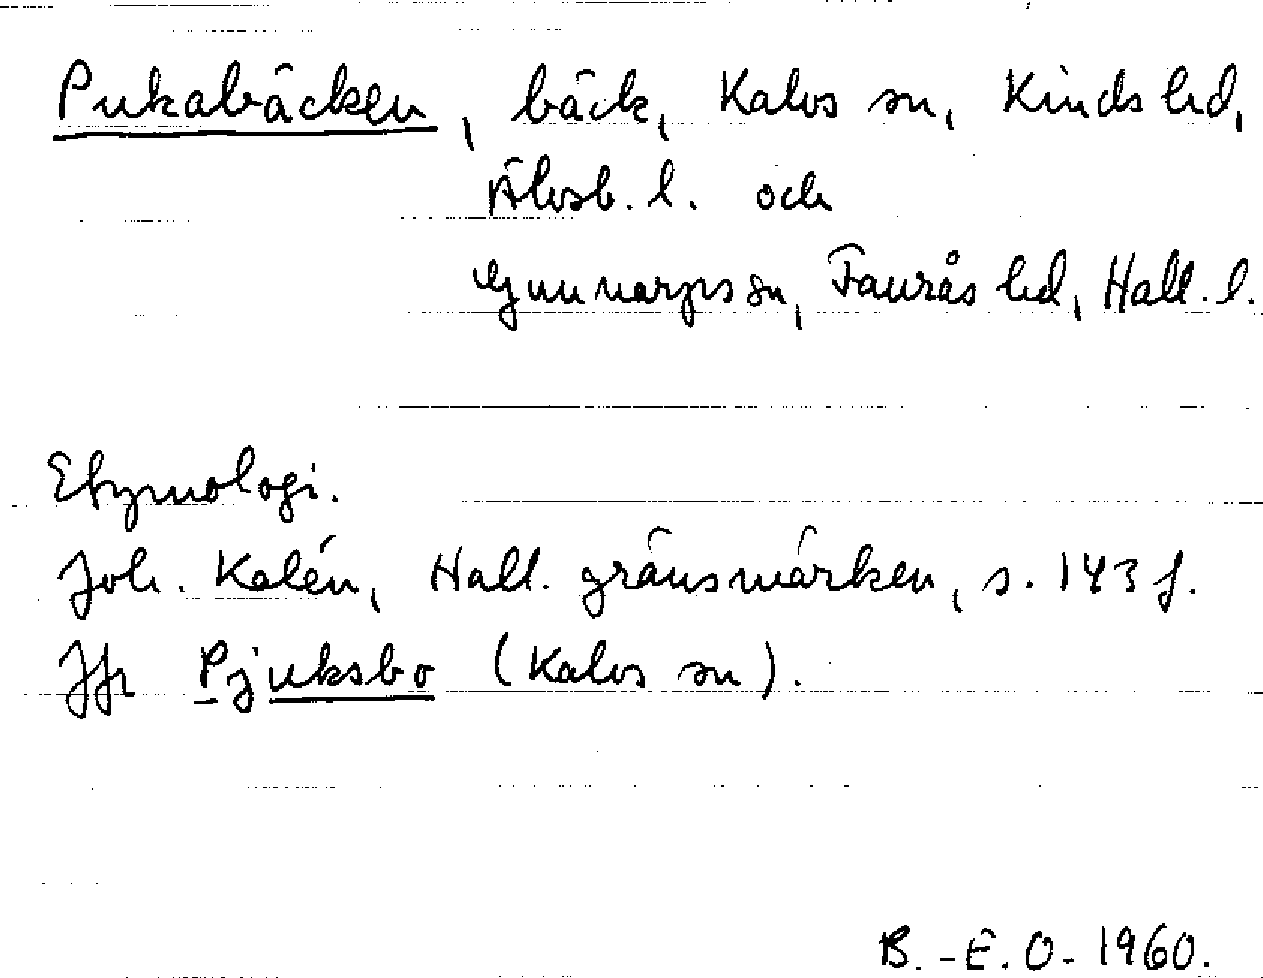 Pukabäcken, bäck, Kalvs sn, Kinds hd,
Älvsb. l. och
Gunnarps sn, Faurås hd, Hall. l.
Etymologi.
Joh. Kalén, Hall. gränsmärken, s. 143 f.
Jfr Pjuksbo (Kalvs sn).
B.-E. O. 1960.